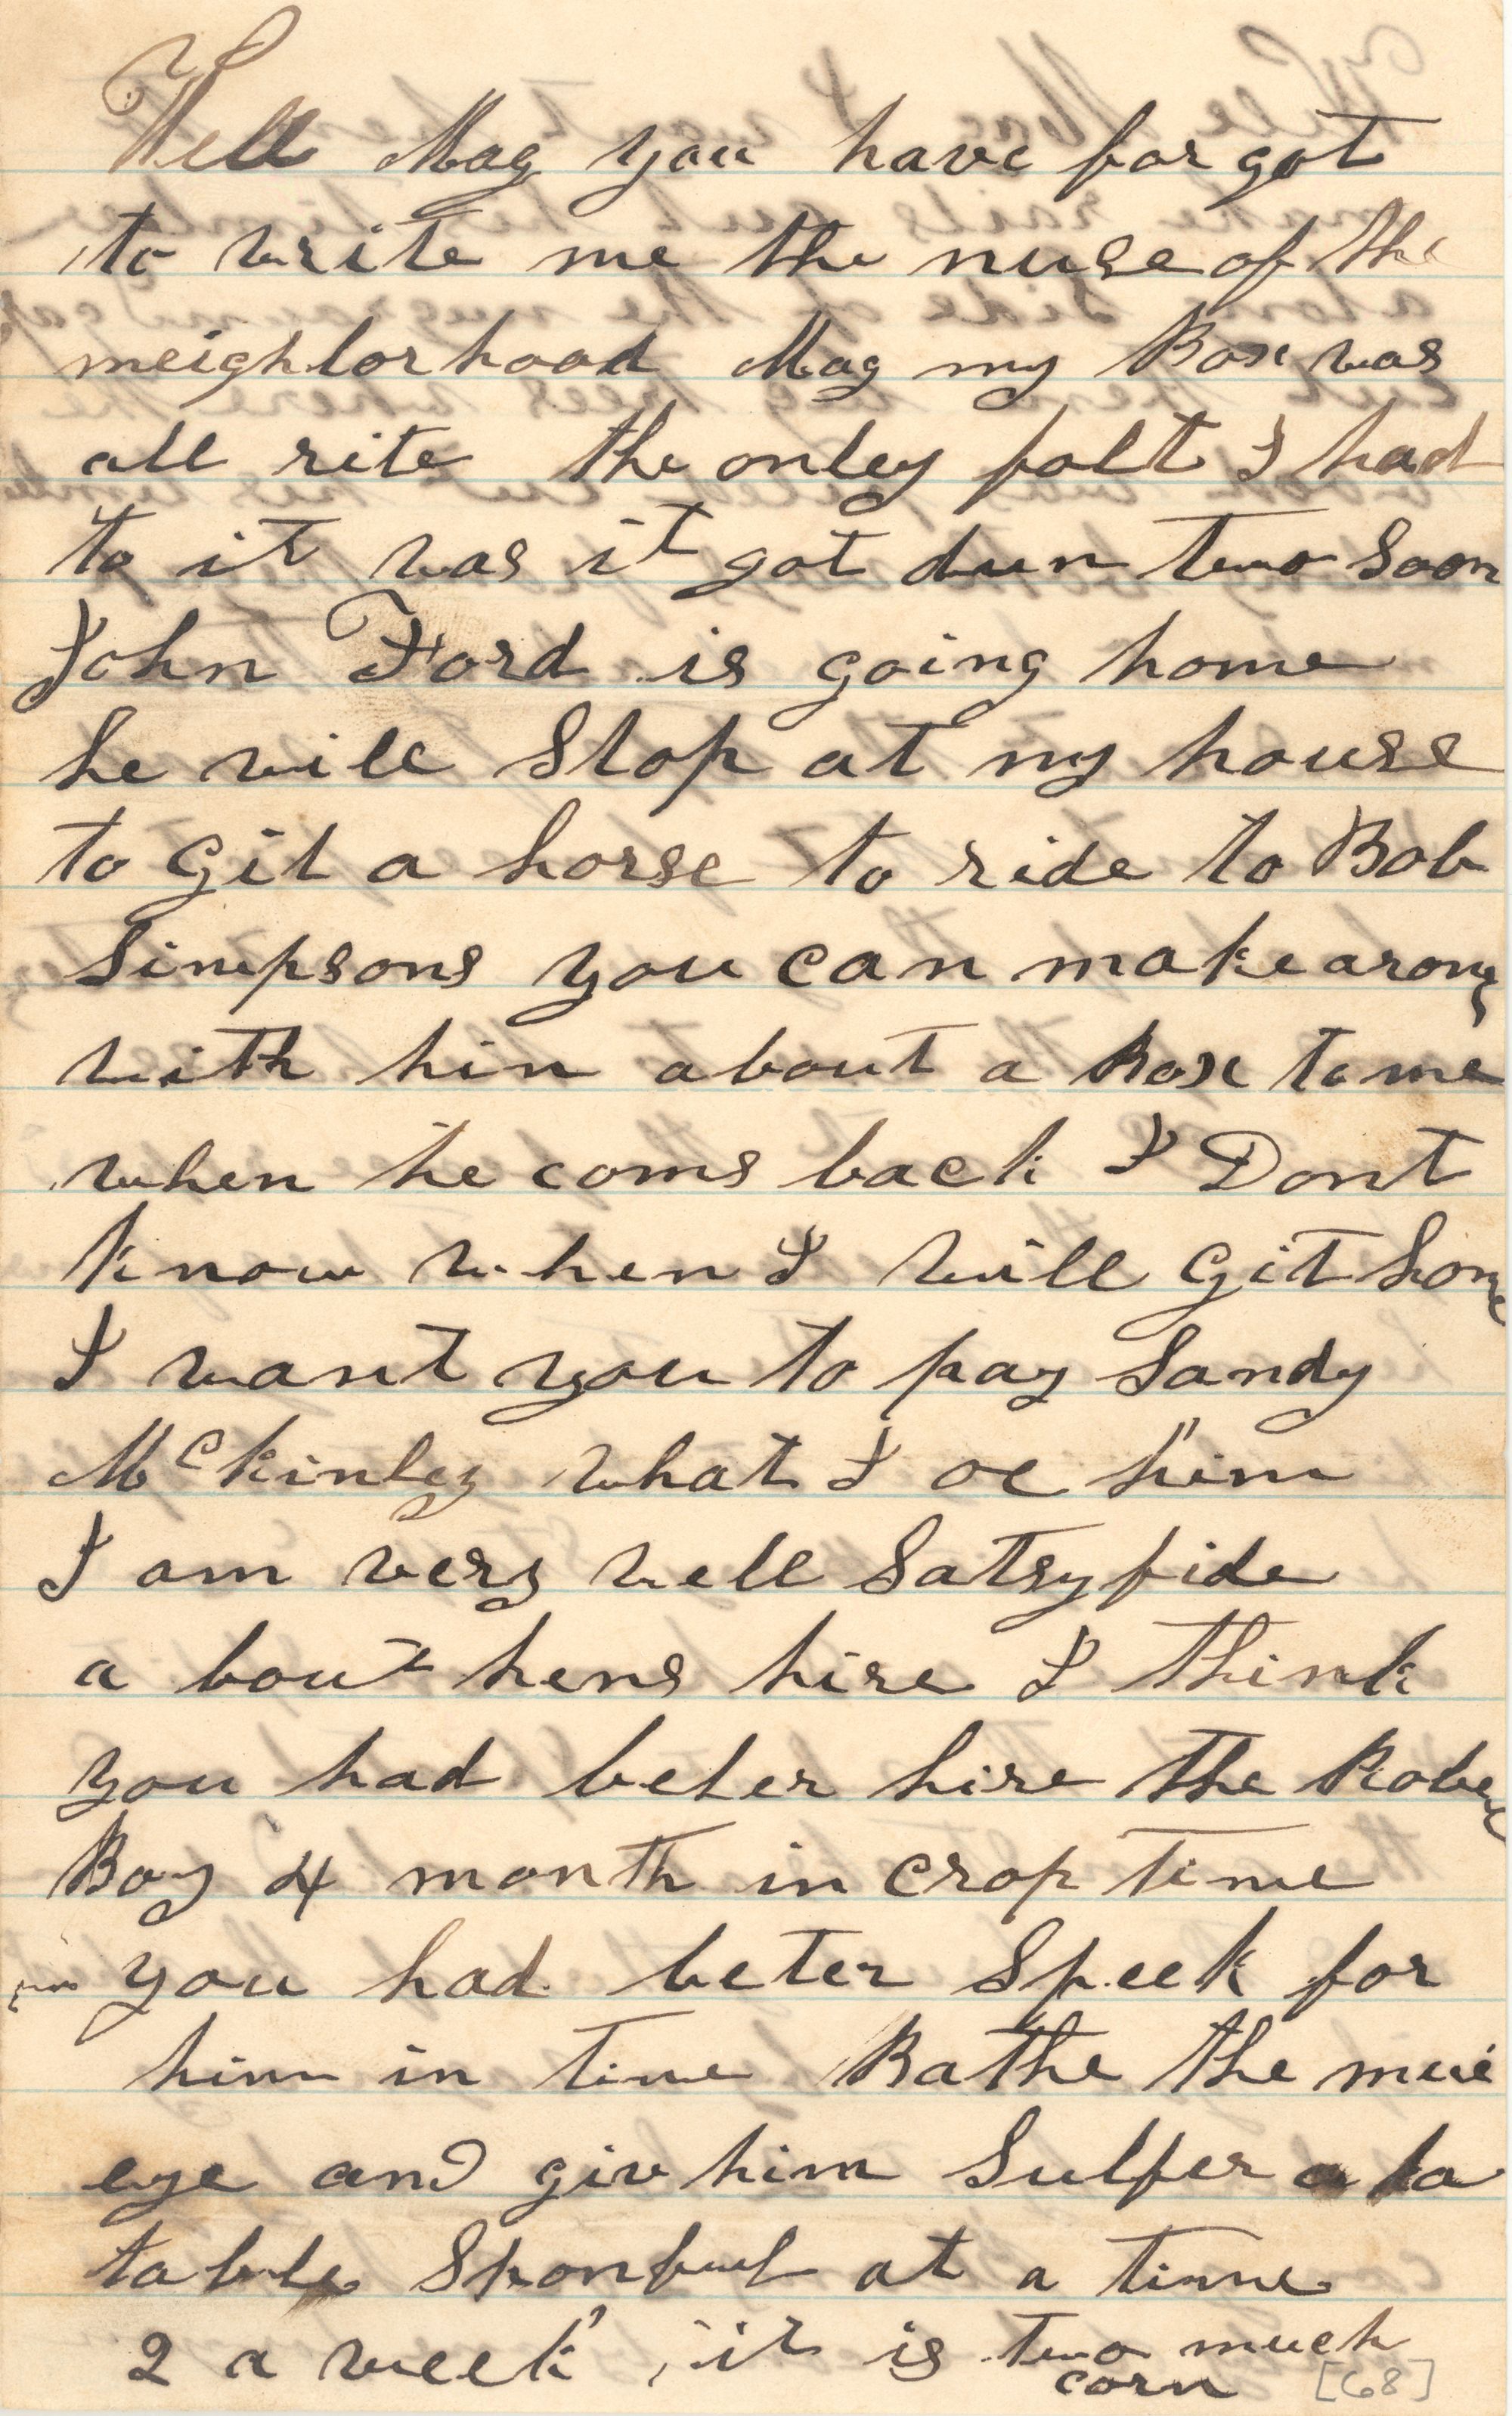 Well Mag you have for got
to write me the nuse of the
neighborhood Mag my Box was
all rite the onley folt I had
to it was it got dun two Soon
John Ford is going home
he will Stop at my house
to Git a horse to ride to Bob
Simpsons you can make arong
with him about a Box to me
when he coms back I Dont
know when I will Git home
I want you to pay Sandy
McKinley what I oe him
I am very well Satsyfide
a bout hens hire I think
you had beter hire the
Boy 4 month in crop time
you had beter Speek for
him in time Bathe the
eye and giv him Sulfer a
table Sponful at a time
2 a week it is two much
corn [68]